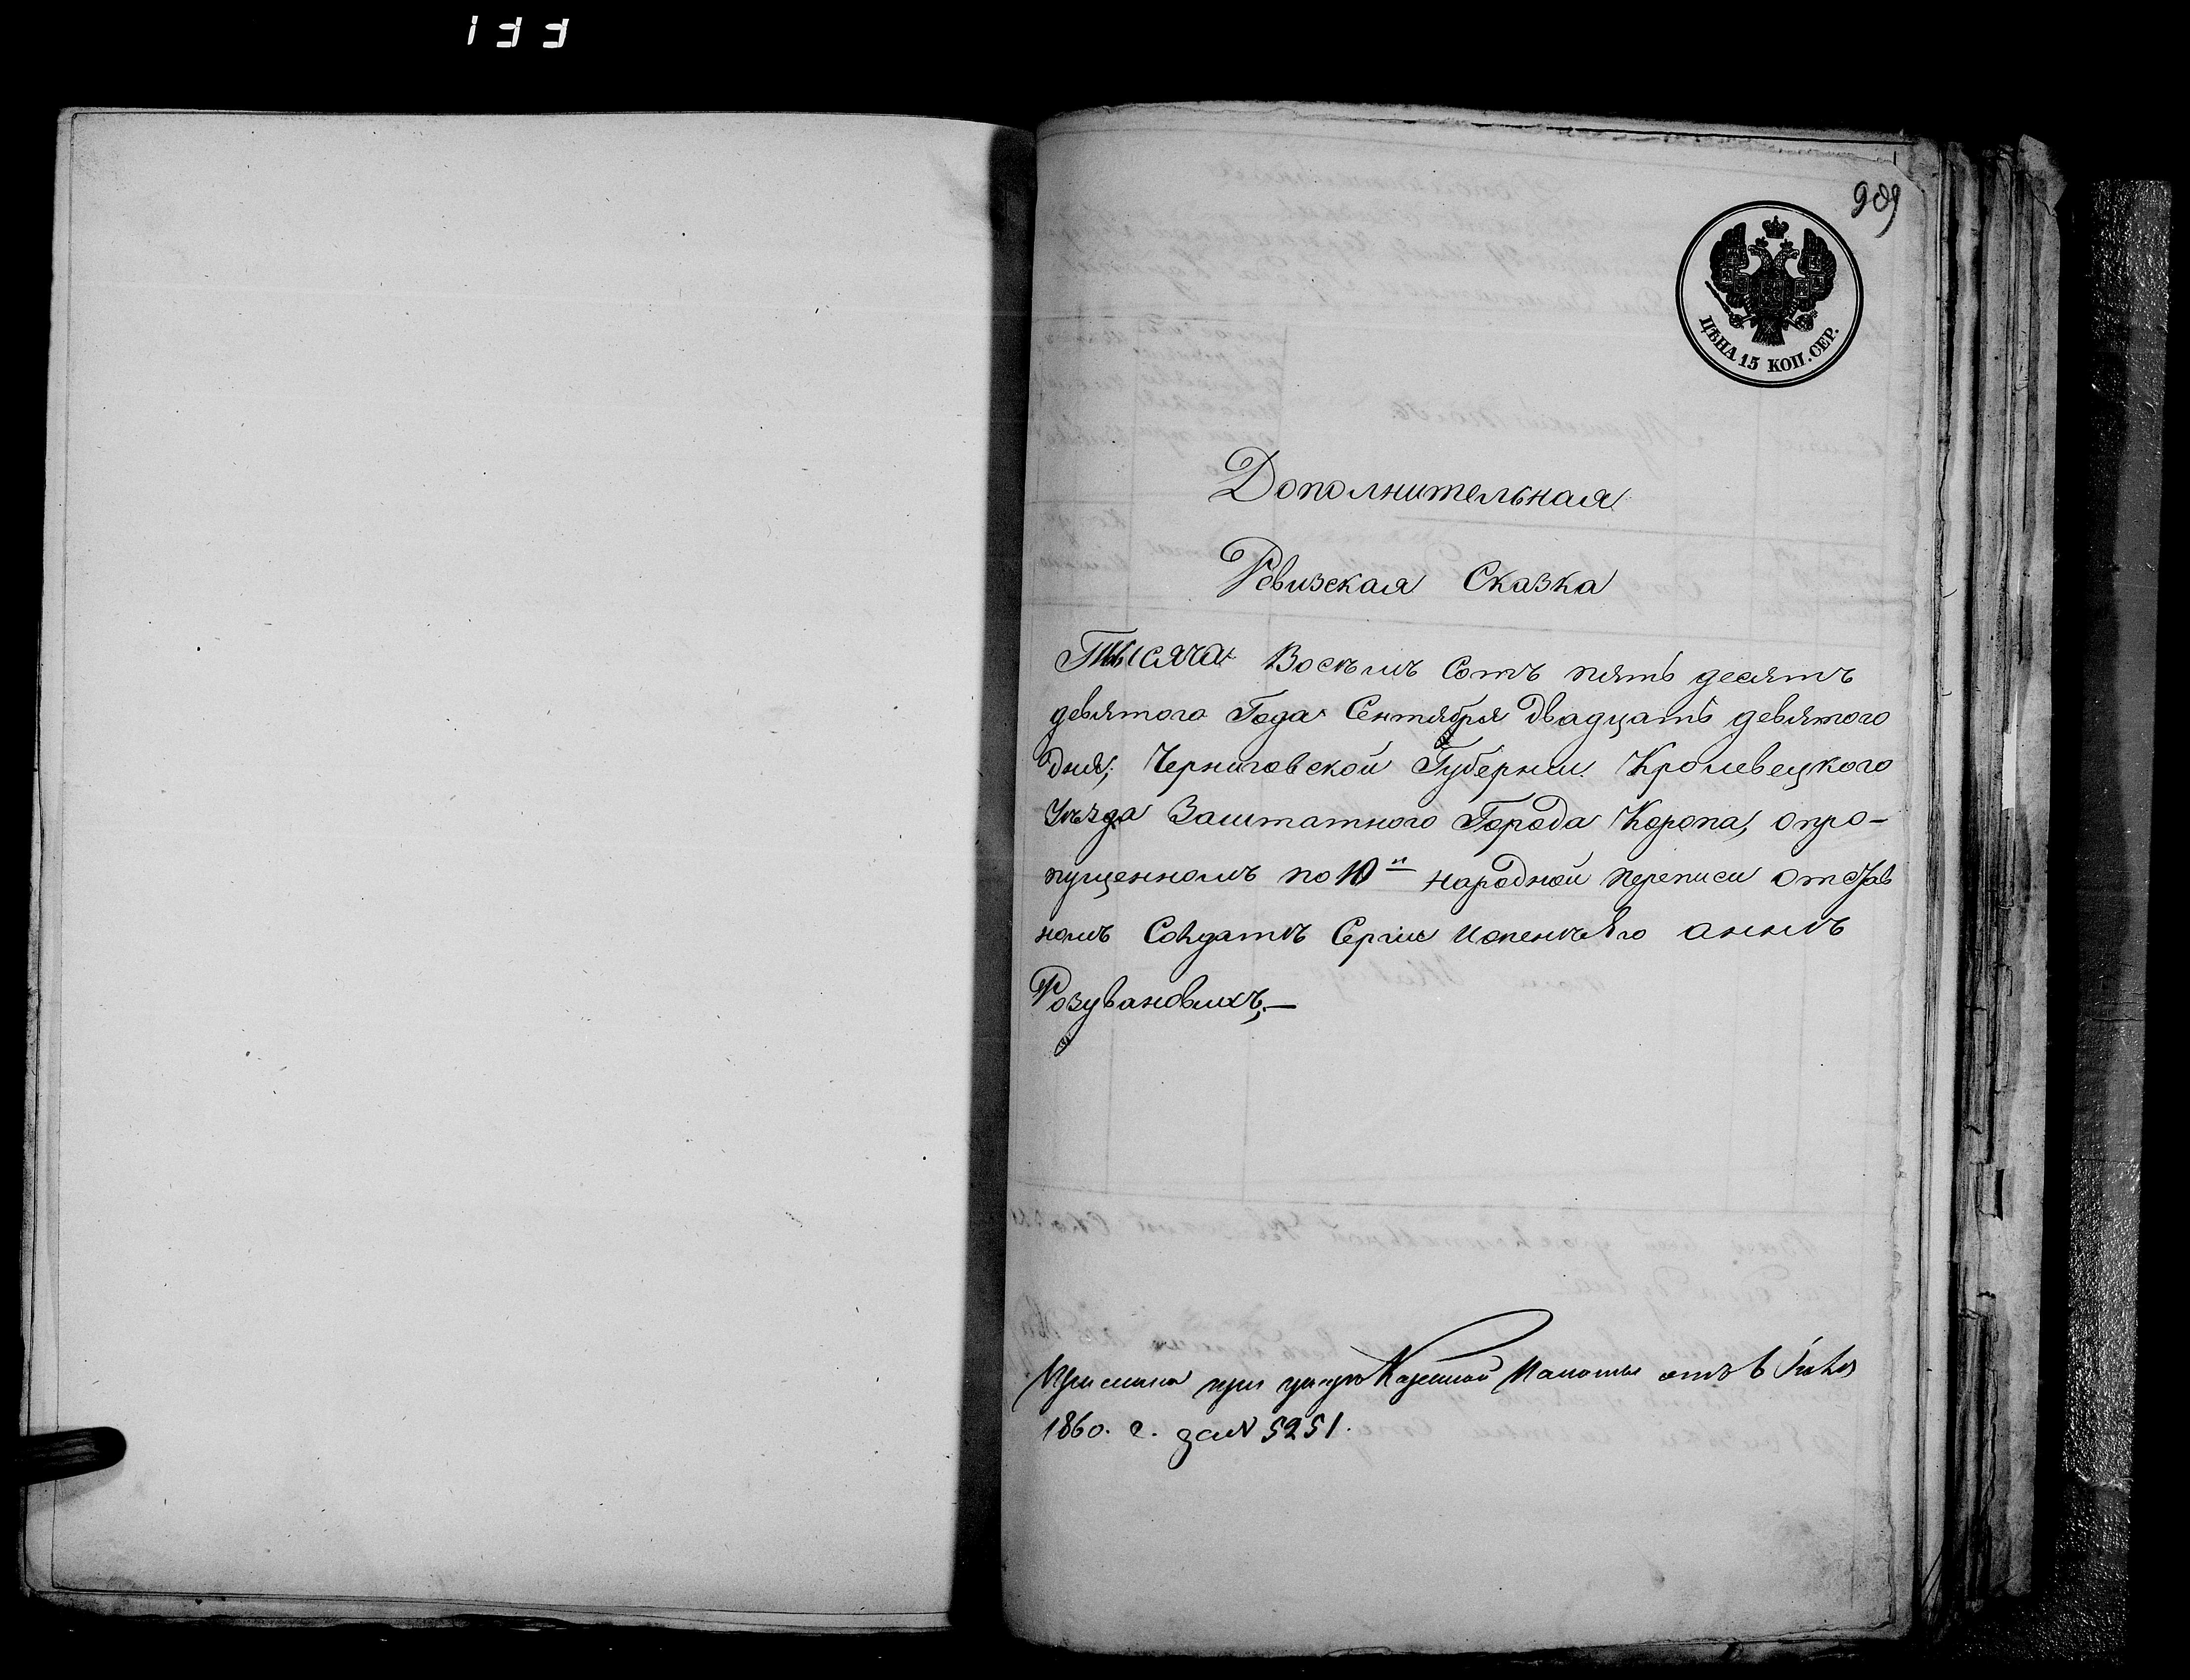 133
909
ЦѢНА 15 КОП. СЕР.
Дополнительная
Ревизская Сказка
Тысяча Восемъ Сотъ пять десятъ
девятого Года Сентября двадцать девятого
дня, Черниговской Губернии Кролевецкого
Уезда Заштатного Города Коропа, о про-
пущенномъ по 10й народной переписи отстав
номъ Солдатѣ Сергие и Его
Розувановыхъ,—
при указѣ Казенной Палаты отъ 6
1860. г. за № 5251.